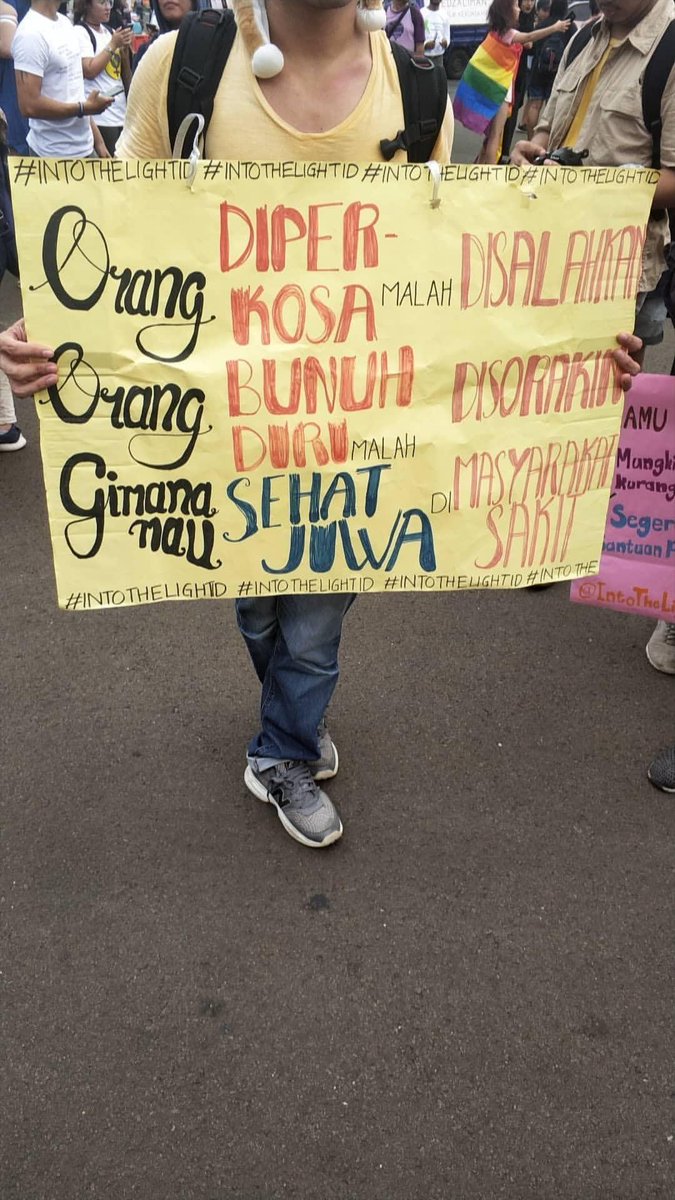 #INTOTHELIGHTID #INTOTHELIGHTID #INTOTHELIGHTID #INTOTHELIGHTID
Orang DIPER-KOSA MALAH DISALAHKAN
Orang BUNUH DIRI MALAH DISORAKIN
Gimana mau SEHAT JIWA DI MASYARAKAT SAKIT
#INTOTHELIGHTID #INTOTHELIGHTID #INTOTHELIGHTID #INTOTHE
AMU
Mungki
kurang
Seger
bantuan P
@IntoTheLi